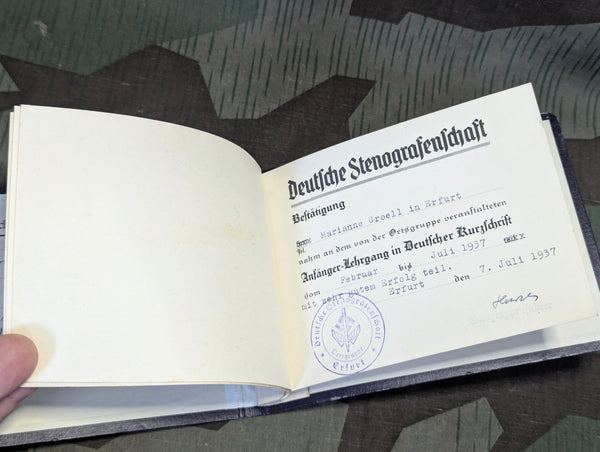 Deutsche Stenografenschaft
Bestätigung
Frl. Marianne Groell in Erfurt
nahm an dem von der Ortsgruppe veranstalteten
Anfänger-Lehrgang in Deutscher Kurzschrift
vom Februar bis Juli 1937
mit sehr gutem Erfolg teil.
Erfurt den 7. Juli 1937
Deutsche Stenografenschaft
Ortsgruppe
Erfurt